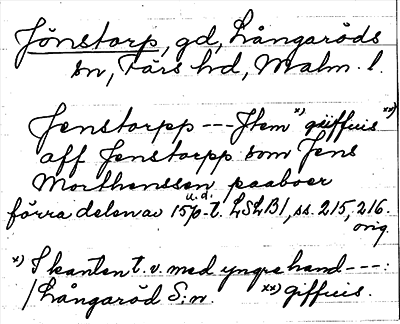 Jönstorp, gd, Långaröds
sn, Färs hd, Malm. l.
Jenstorpp --- Jtem x) giiffuis xx)
aff Jenstorpp som Jens
Morthenssen paaboer
u.d.
förra delen av 15/0-t. LSLB1, ss. 215, 216.
orig.
x) I kanten t.v. med yngre hand ---:
/Långaröd S:n. xx) giffuis.